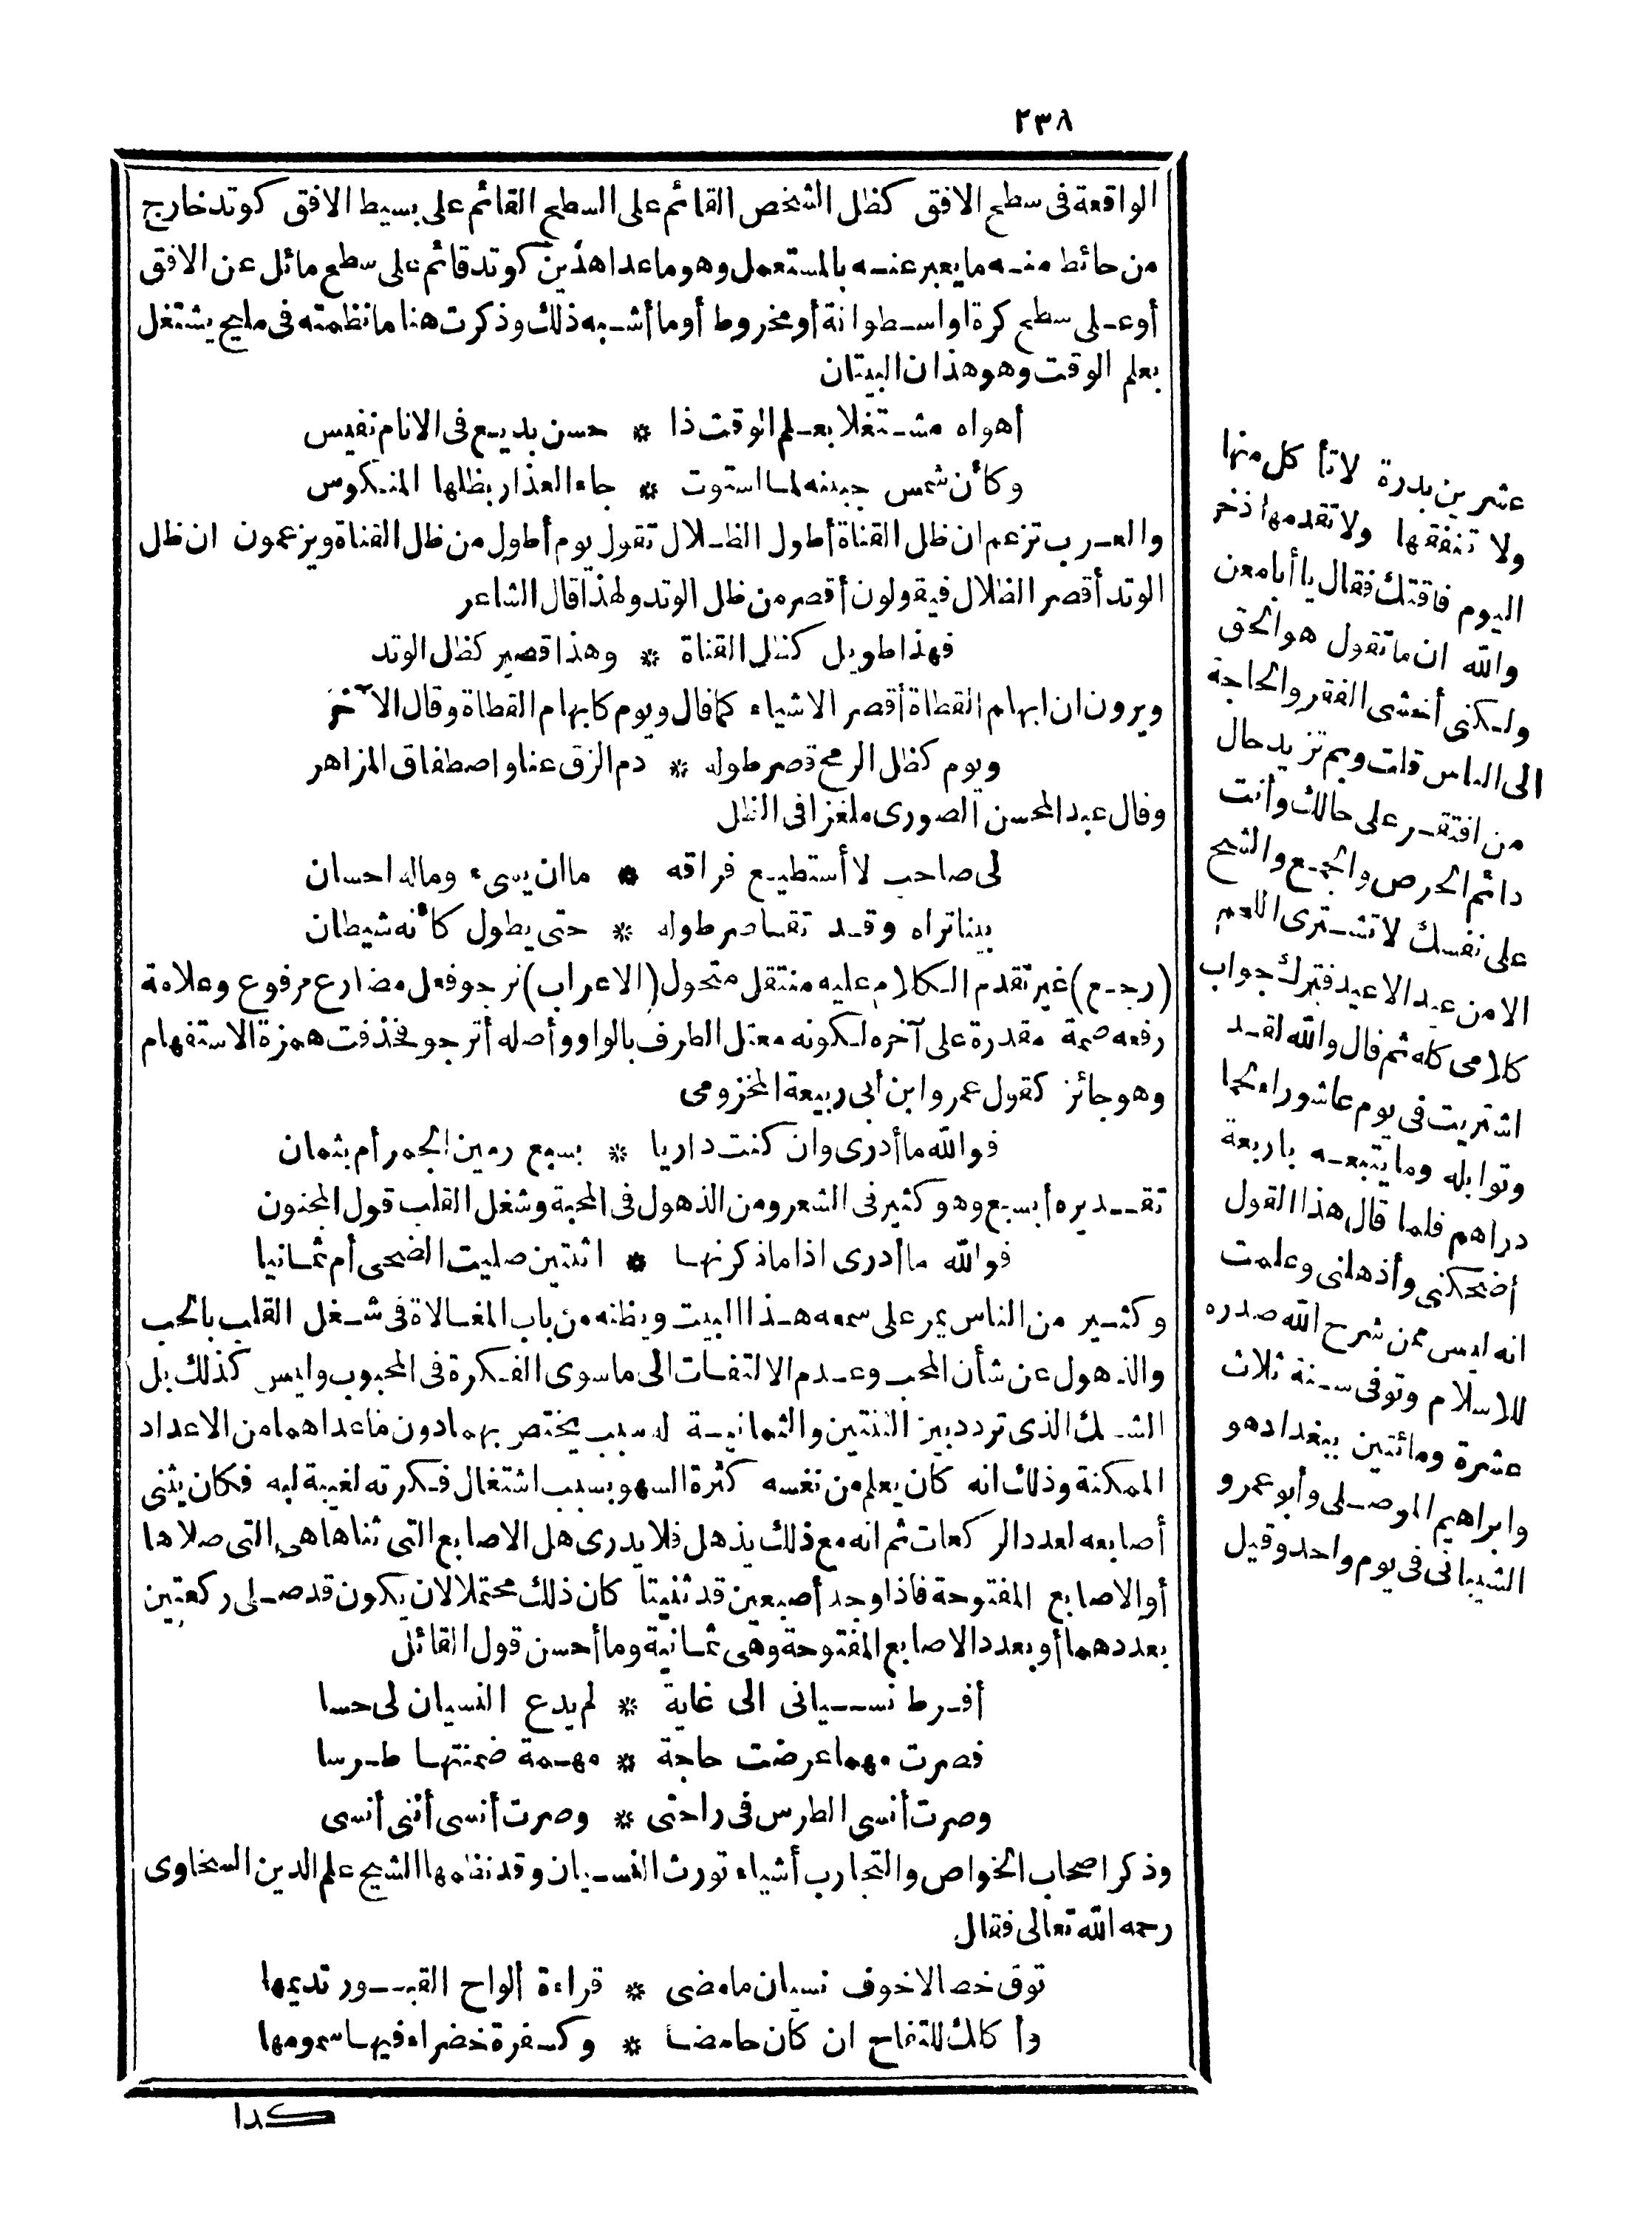 ٢٣٨
الواقعة فى سطح الافق كظل الشخص القائم على السطح القائم على بسيط الافق كوتد خارج
من حائط منه ما يعبر عنه بالمستعمل وهو ما عدا هذين كوتد قائم على سطح مائل عن الافق
أو على سطح كرة او اسطوانة أو مخروط أو ما أشبه ذلك وذكرت هنا ما نظمته فى مليح يشتغل
بعلم الوقت وهو هذان البيتان
أهواه مشتغلا بعلم الوقت ذا * حسن بديع فى الانام نفيس
وكأن شمس جبينه لما استوت * جاء العذار بظلها المنكوس
والعرب تزعم ان ظل القناة أطول الظلال تقول يوم أطول من ظل القناة ويزعمون ان ظل
الوتد أقصر الظلال فيقولون أقصر من ظل الوتد ولهذا قال الشاعر
فهذا طويل كظل القناة * وهذا قصير كظل الوتد
ويرون ان ابهام القطاة أقصر الاشياء كما قال ويوم كابهام القطاة وقال الآخر
ويوم كظل الرمح قصر طوله * دم الزق عنا واصطفاق المزاهر
وقال عبد المحسن الصورى ملغزا فى الظل
لى صاحب لا أستطيع فراقه * ما ان يسىء وما له احسان
بينا تراه وقد تقاصر طوله * حتى يطول كأنه شيطان
(رجع) غير تقدم الكلام عليه منتقل متحول (الاعراب) نرجو فعل مضارع مرفوع وعلامة
رفعه ضمة مقدرة على آخره لكونه معتل الطرف بالواو وأصله أترجو فحذفت همزة الاستفهام
وهو جائز كقول عمرو ابن أبى ربيعة المخزومى
فوالله ما أدرى وان كنت داريا * بسبع رمين الجمر أم بثمان
تقديره أبسبع وهو كثير فى الشعر ومن الذهول فى المحبة وشغل القلب قول المجنون
فوالله ما أدرى اذا ما ذكرتها * اثنتين صليت الضحى أم ثمانيا
وكثير من الناس يمر على سمعه هذا البيت ويظنه من باب المغالاة فى شغل القلب بالحب
والذهول عن شأن المحب وعدم الالتفات الى ما سوى الفكرة فى المحبوب وليس كذلك بل
الشك الذى تردد بين الثنتين والثمانية له سبب يختص بهما دون ما عداهما من الاعداد
الممكنة وذلك انه كان يعلم من نفسه كثرة السهو بسبب اشتغال فكرته لغيبة لبه فكان يثنى
أصابعه لعدد الركعات ثم انه مع ذلك يذهل فلا يدرى هل الاصابع التى ثناها هى التى صلاها
أو الاصابع المفتوحة فاذا وجد أصبعين قد ثنيتا كان ذلك محتملا لان يكون قد صلى ركعتين
بعددهما أو بعدد الاصابع المفتوحة وهى ثمانية وما أحسن قول القائل
أفرط نسيانى الى غاية * لم يدع النسيان لى حسا
فصرت مهما عرضت حاجة * مهمة ضمنتها طرسا
وصرت أنسى الطرس فى راحتى * وصرت أنسى أننى أنسى
وذكر اصحاب الخواص والتجارب أشياء تورث النسيان وقد نظمها الشيخ علم الدين السخاوى
رحمه الله تعالى فقال
توق خصالا خوف نسيان ما مضى * قراءة ألواح القبور تديمها
وأكلك للتفاح ان كان حامضا * وكسفرة خضراء فيها سمومها
كذا
عشرين بدرة لا تأكل منها
ولا تنفقها ولا تقدمها ذخر
اليوم فاقتك فقال يا أبا معن
والله ان ما تقول هو الحق
ولكنى أخشى الفقر والحاجة
الى الناس قلت وبم تزيد حال
من افتقر على حالك وأنت
دائم الحرص والجمع والشح
على نفسك لا تشترى اللحم
الا من عيد الا عيد فترك جواب
كلامى كله ثم قال والله لقد
اشتريت فى يوم عاشوراء لحما
وتوابله وما يتبعه باربعة
دراهم فلما قال هذا القول
أضحكنى وأذهلنى وعلمت
انه ليس ممن شرح الله صدره
للاسلام وتوفى سنة ثلاث
عشرة ومائتين ببغداد هو
وابراهيم الموصلى وأبو عمرو
الشيبانى فى يوم واحد وقيل